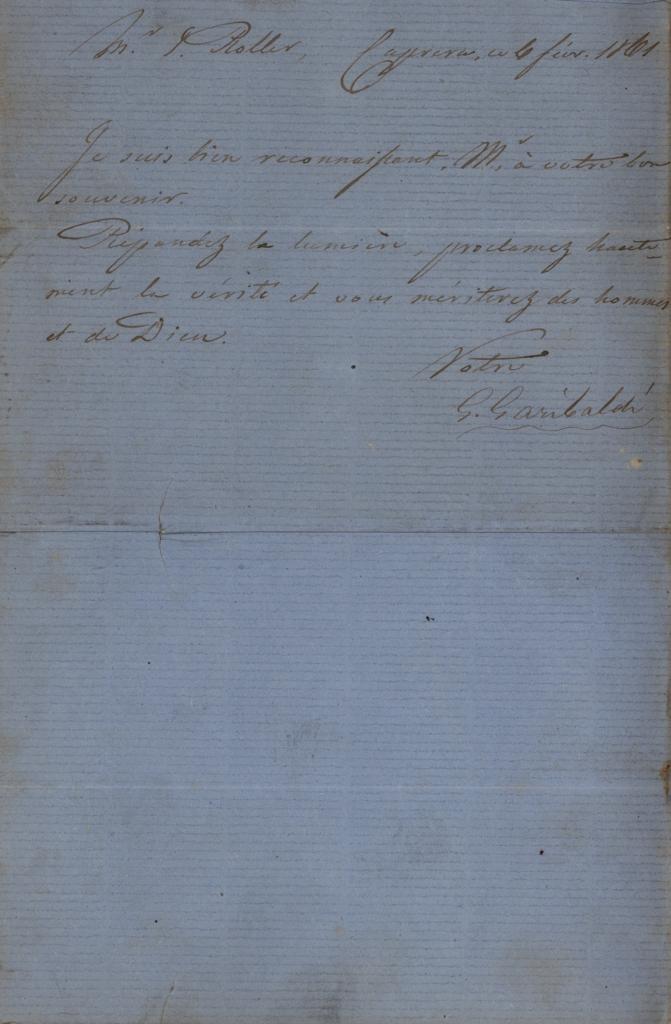 Mr. T. Roller, Caprera, ce 6 fév. 1861
Je suis bien reconnaissant, Mr. à votre bon
souvenir.
Répandez la lumière, proclamez haute-
ment la vérité et vous mériterez des hommes
et de Dieu.
Votre
G. Garibaldi